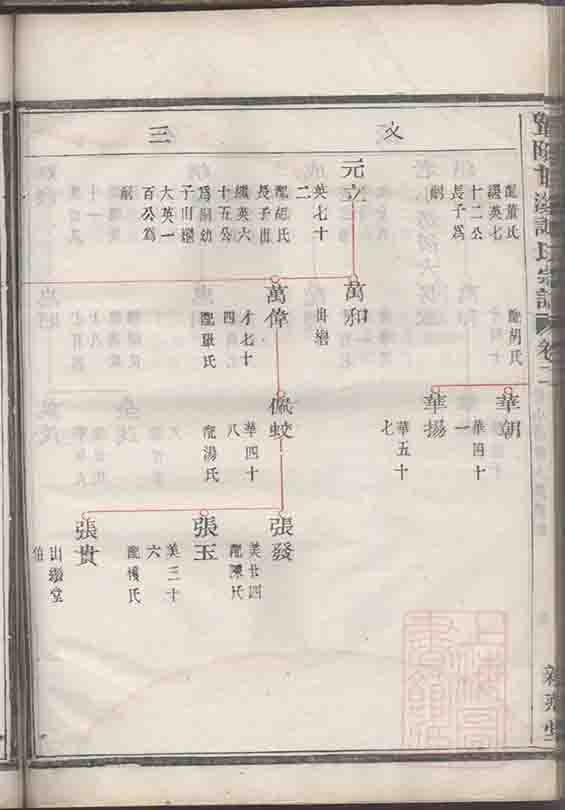 文
三
配董氏
選英七
十二公
長子爲
嗣
元立
英七十
二
配胡氏
長子出
繼英六
十五公
爲嗣幼
子出繼
大英一
百公爲
嗣
萬和
出紹
萬偉
才七十
四
配嚴氏
配胡氏
華朝
華四十
一
華揚
華五十
七
佩蛟
華四十
八
配湯氏
張發
美廿四
配陳氏
張玉
美三十
六
配樓氏
張貴
出繼堂
伯